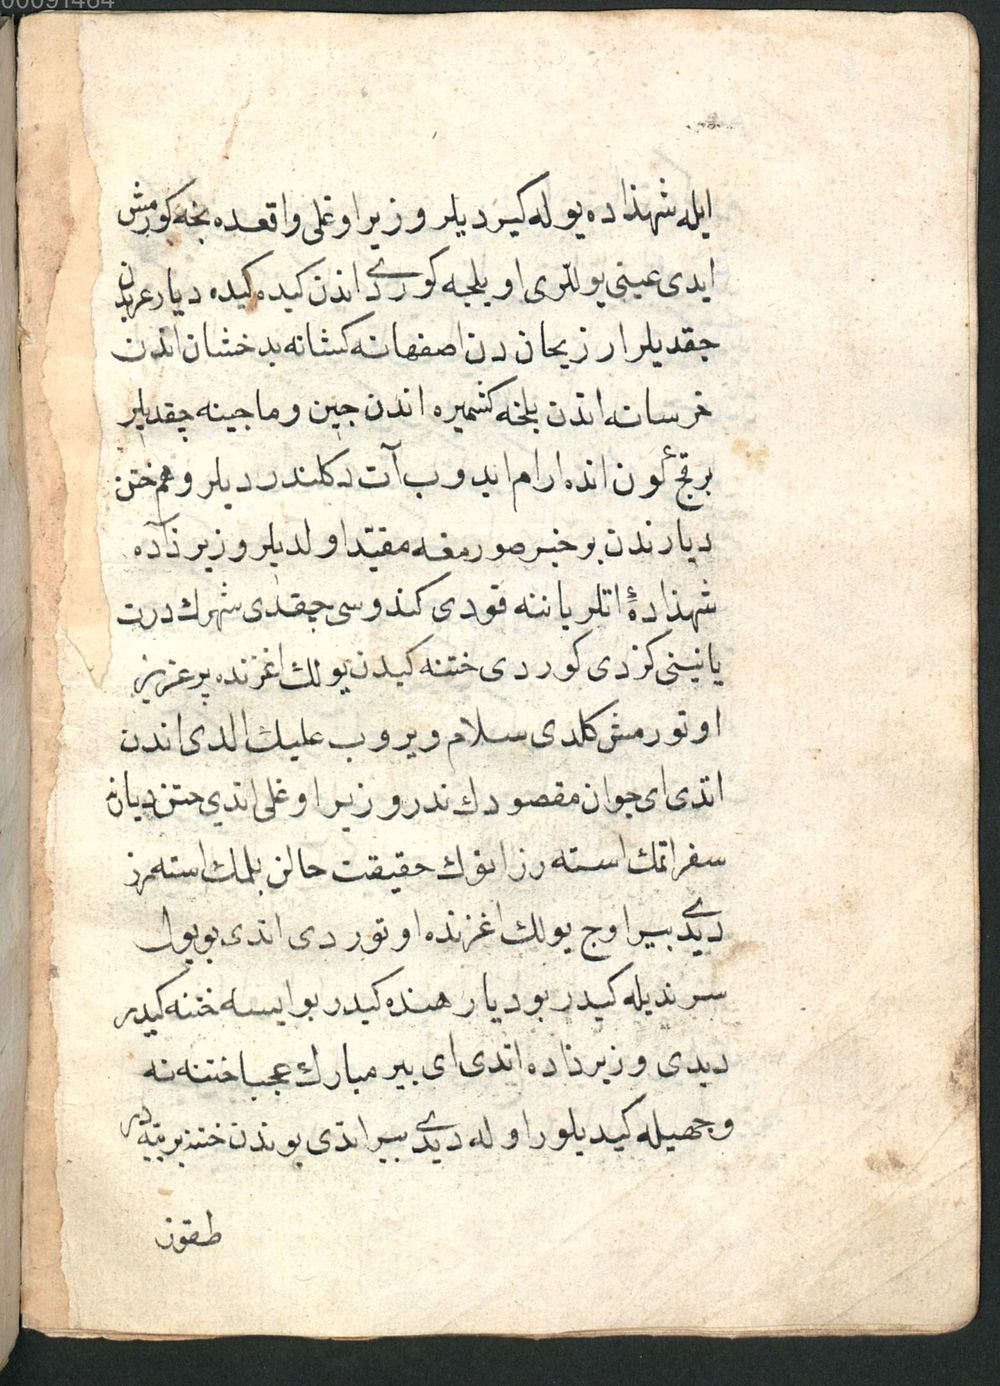 00091464
ایله شهذاده یوله کیردیلر وزیر اوغلی واقعه ده نجه کورمش
ایدی عینی یوللری اویلجه کوردی اندن کیده کیده دیار عربدن
چقدیلر ارزیحان دن اصفهانه کشانه بدخشان اندن
خرسانه اندن بلخه کشمیره اندن چین و ماچینه چقدیلر
بر قچ کون انده ارام ایدوب آت دکلندردیلر و هم ختن
دیارندن بر خبر صورمغه مقید اولدیلر وزیر زاده
شهذادهٔ اتلر یاننه قودی کندوسی چقدی شهرك درت
یانینی کزدی کوردی ختنه کیدن یولك اغزنده بر عزیز
اوتورمش کلدی سلام ویروب علیك الدی اندن
اتدی ای جوان مقصودك ندر وزیر اوغلی اتدی ختن دیارنه
سفر اتمك استه رز انوك حقیقت حالن بلمك استه رز
دیدی پیر اوچ یولك اغزنده اوتوردی اتدی بو یول
سرندیله کیدر بو دیار هنده کیدر بو ایسه ختنه کیدر
دیدی وزیر زاده اتدی ای پیر مبارك عجبا ختنه نه
وجهیله کیدیلور اوله دیدی پیر اتدی بوندن ختنه یتیه در
طقوز